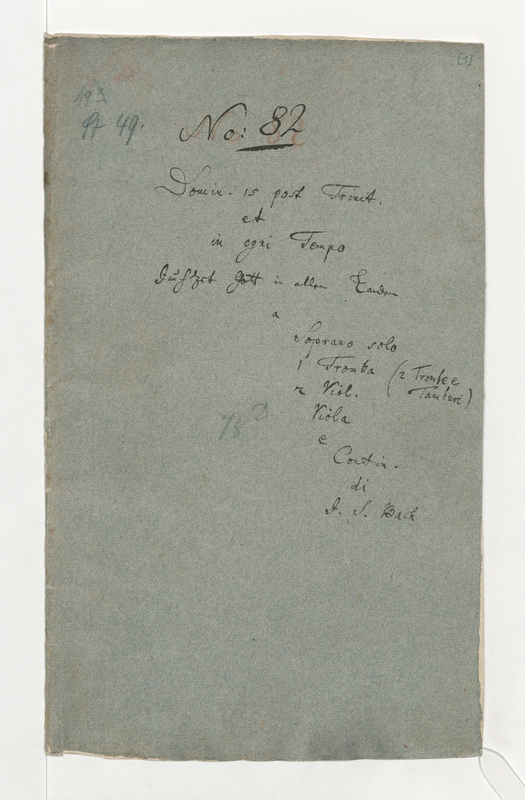 [1]
St 49.
No: 82
Domin. 15 post Trinit.
et
in ogni Tempo
Jauchzet Gott in allen Landen
a
Soprano solo
1 Tromba (2 Trombe e
Tamburi)
2 Viol.
Viola
e
Contin.
di
J. S. Bach